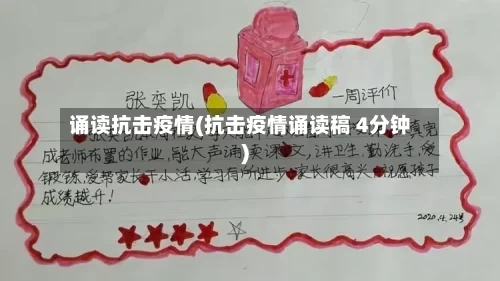 张奕凯
一周评价
诵读抗击疫情(抗击疫情诵读稿 4分钟
)
真完
成老师布置的作业,能大声诵读课文,讲卫生,勤洗手,爱
锻练,爱帮家长干小活,学习有所进步,家长很高兴,祝愿孩子
成绩越升!
2020.4.24号